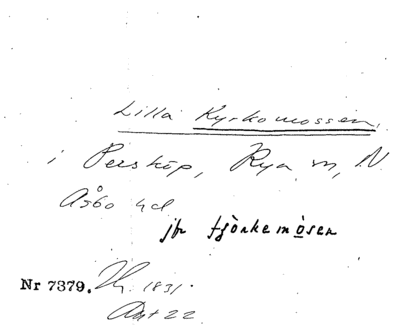 Lilla Kyrkomossen,
i Perstorp, Rya sn, N
Åsbo hd
jfr tjörkemòsen
Nr 7379. 1831.
Akt 22